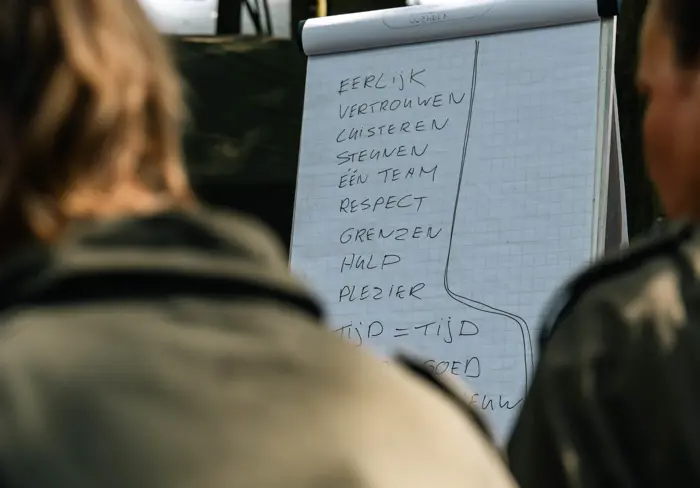 EERLIJK
VERTROUWEN
LUISTEREN
STEUNEN
ÉÉN TEAM
RESPECT
GRENZEN
HULP
PLEZIER
TIJD = TIJD